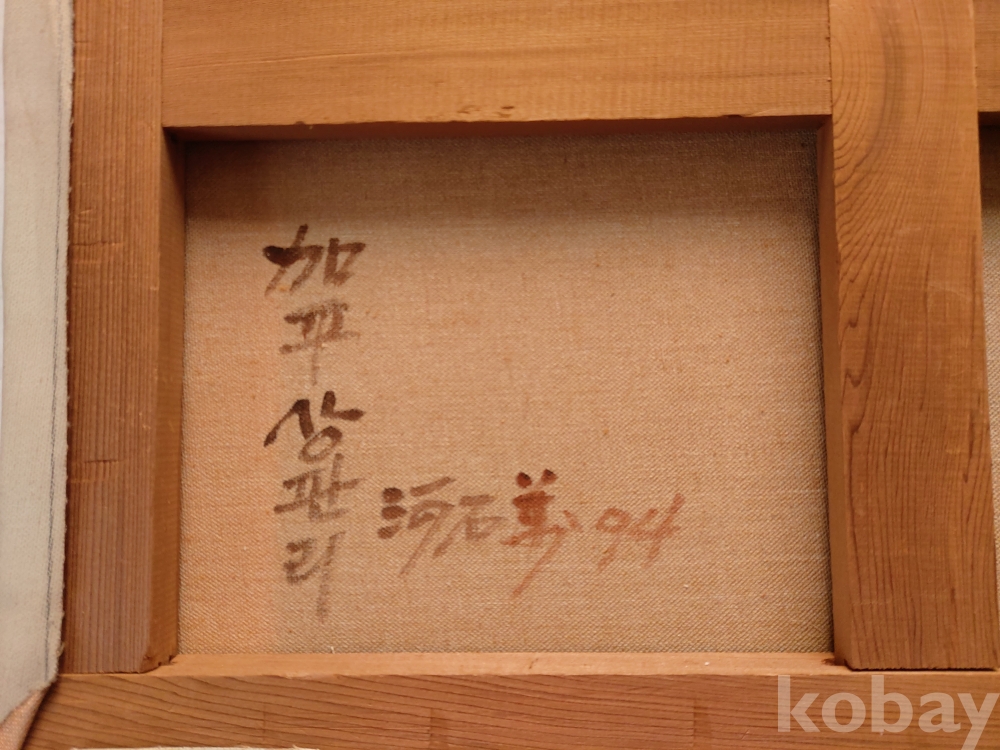 加平 상판리
河石 94
kobay